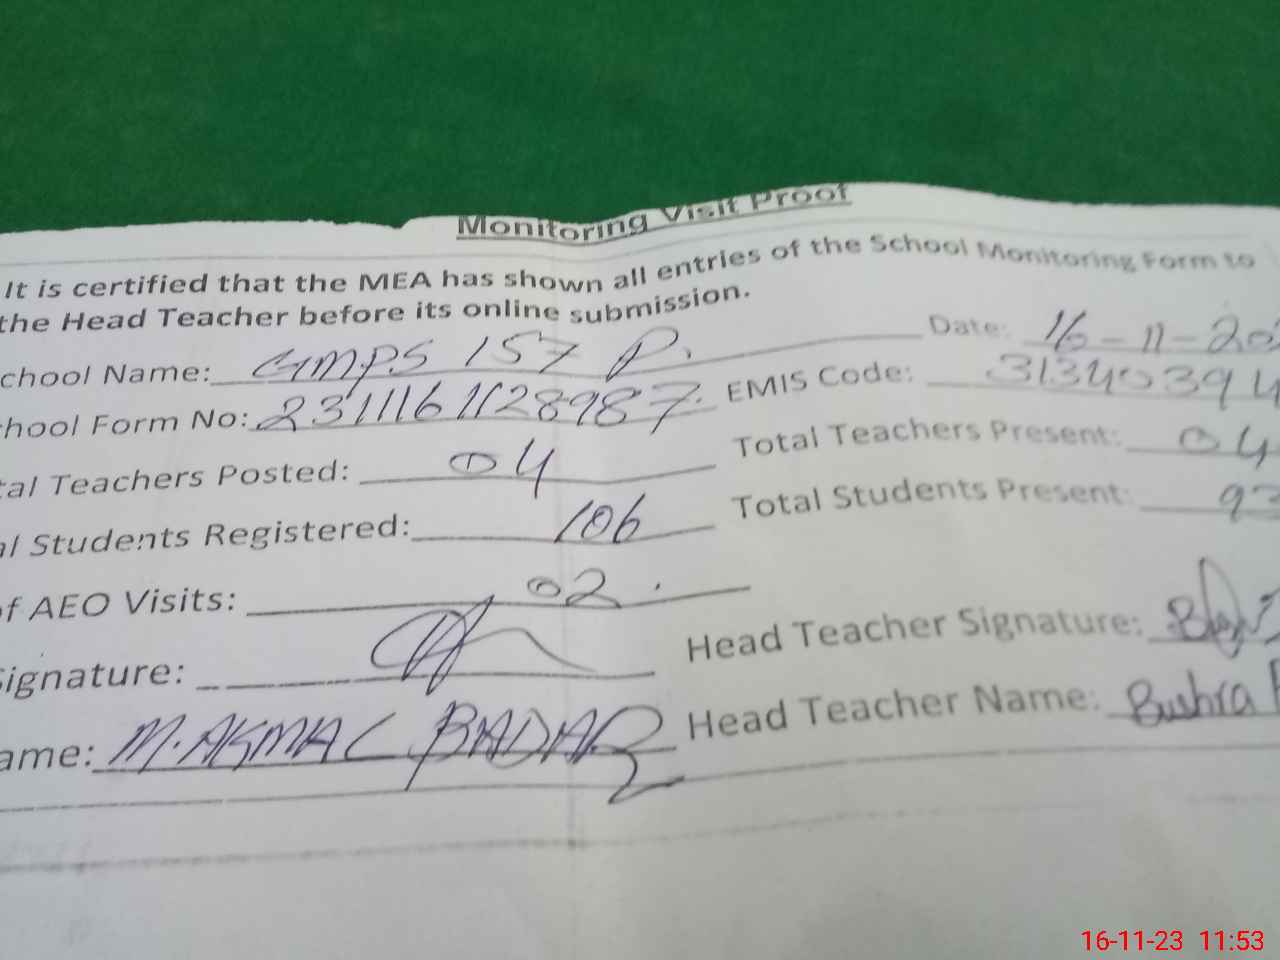 Monitoring Visit Proof
It is certified that the MEA has shown all entries of the School Monitoring Form to
the Head Teacher before its online submission.
chool Name: GMPS 157 P. Date: 16-11-20
hool Form No: 2311161128987. EMIS Code: 31340394
tal Teachers Posted: 04 Total Teachers Present: 04
al Students Registered: 106 Total Students Present: 93
of AEO Visits: 02.
Signature: Head Teacher Signature:
ame: M. AKMAL BADAR Head Teacher Name: Bushra
16-11-23 11:53